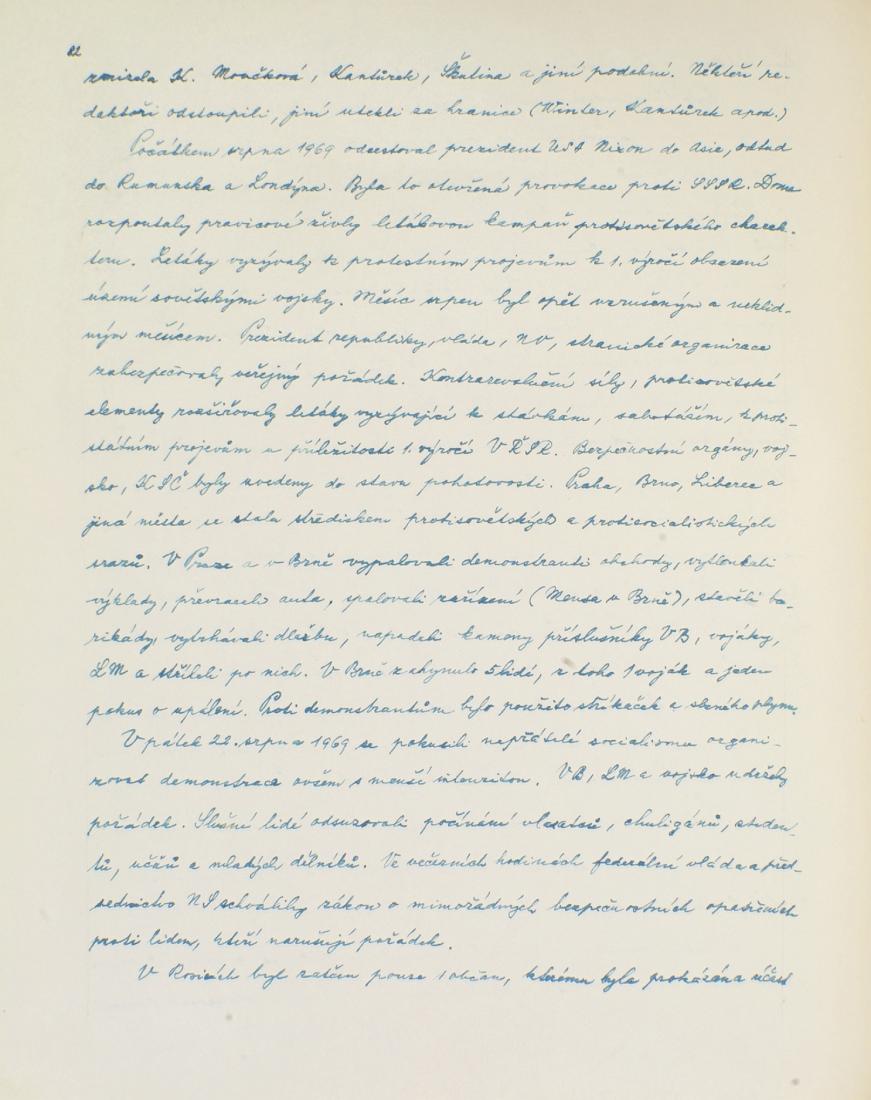 82
zmizela K. Moučková, Kantůrek, Škutina a jiní podobní. Někteří re-
daktoři odstoupili, jiní utekli za hranice (Winter, Kantůrek apod.)
Počátkem srpna 1969 odcestoval prezident USA Nixon do Asie, odtud
do Rumunska a Londýna. Byla to otevřená provokace proti SSSR. Doma
rozpoutaly pravicové živly letákovou kampaň protisovětského charak-
teru. Letáky vyzývaly k protestním projevům k 1. výročí obsazení
území sovětskými vojsky. Měsíc srpen byl opět vzrušeným a neklid-
ným měsícem. Prezident republiky, vláda, NV, stranické organizace
zabezpečovaly veřejný pořádek. Kontrarevoluční síly, protisovětské
elementy rozšiřovaly letáky vyzývající k stávkám, sabotážím, k proti-
státním projevům u příležitosti 1. výročí V ŘSR. Bezpečnostní orgány, voj-
sko, KSČ byly uvedeny do stavu pohotovosti. Praha, Brno, Liberec a
jiná města se stala střediskem protisovětských a protisocialistických
srazů. V Praze a v Brně vypalovali demonstranti obchody, vytloukali
výklady, převraceli auta, spalovali zařízení (Mensa v Brně), stavěli ba-
rikády, vytrhávali dlažbu, napadali kameny příslušníky VB, vojáky,
LM a stříleli po nich. V Brně zahynulo 5 lidí, z toho 1 voják a jeden
pokus o upálení. Proti demonstrantům bylo použito stříkaček a slzného plynu.
V pátek 22. srpna 1969 se pokusili nepřátelé socialismu organi-
zovat demonstrace ovšem s menší intenzitou. VB, LM a vojsko udržely
pořádek. Slušní lidé odsuzovali počínání vlasatců, chuligánů, studen-
tů, učňů a mladých dělníků. Ve večerních hodinách federální vláda a před-
sednictvo NS schválily zákon o mimořádných bezpečnostních opatřeních
proti lidem, kteří narušují pořádek.
V Rosicích byl zatčen pouze 1 občan, kterému byla prokázána účast